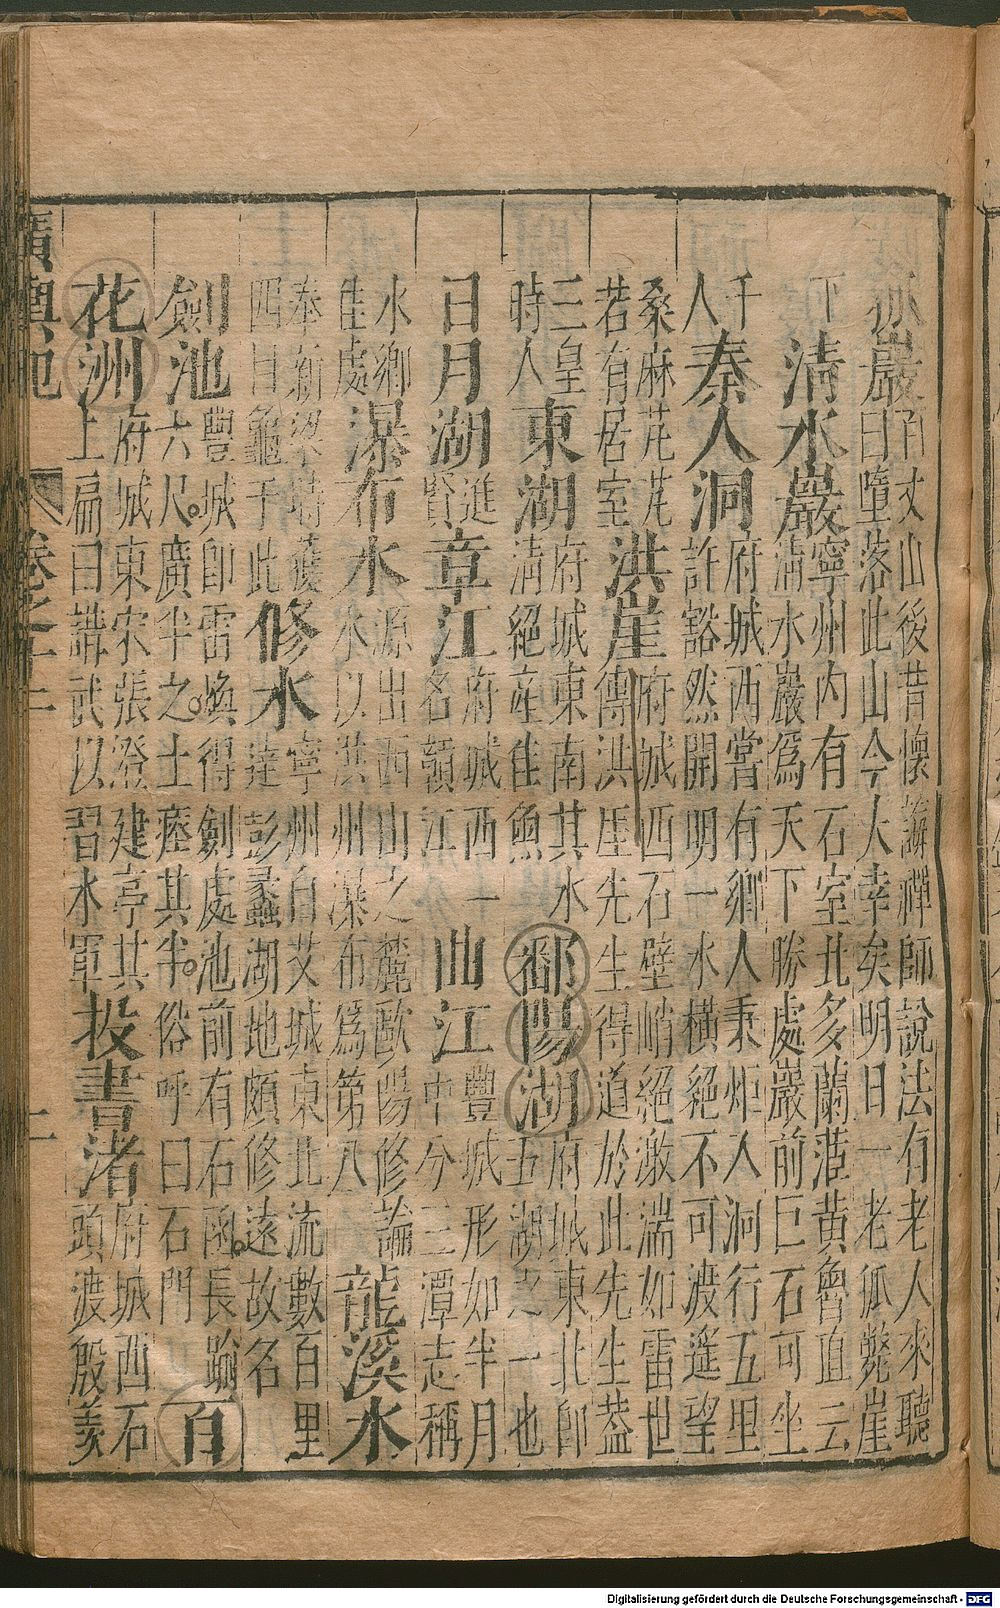 狐巖百丈山後昔懷讓禪師說法有老人來聽曰墮落此山今大幸矣明日一老狐斃崖
下清水巖寧州內有石室北多蘭茝黃魯直云清水巖爲天下勝處巖前巨石可坐
千人秦人洞府城西嘗有鄉人秉炬入洞行五里許豁然開明一水橫絕不可渡遥望
桑麻芃芃若有居室洪崖府城西石壁峭絕激湍如雷世傳洪厓先生得道於此先生蓋
三皇時人東湖府城東南其水清絕産佳魚鄱陽湖府城東北卽五湖之一也
日月湖進賢章江府城西一名贛江曲江豐城形如半月中分三潭志稱
水鄉佳處瀑布水源出西山之麓歐陽修論水以洪州瀑布爲第八龍溪水
奉新梁時獲四目龜于此修水寧州自艾城東北流數百里達彭蠡湖地頗修遠故名
劍池豐城卽雷煥得劍處池前有石函長踰六尺廣半之土瘞其半俗呼曰石門百
花洲府城東宋張澄建亭其上扁曰講武以習水軍投書渚府城西石頭渡殷羨
廣輿記 卷之十二 二
Digitalisierung gefördert durch die Deutsche Forschungsgemeinschaft - DFG